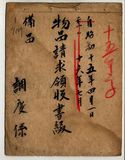 十五年子
自昭和十五年四月一日
至十六年七月
物品請求領收書綴
備品
調度係